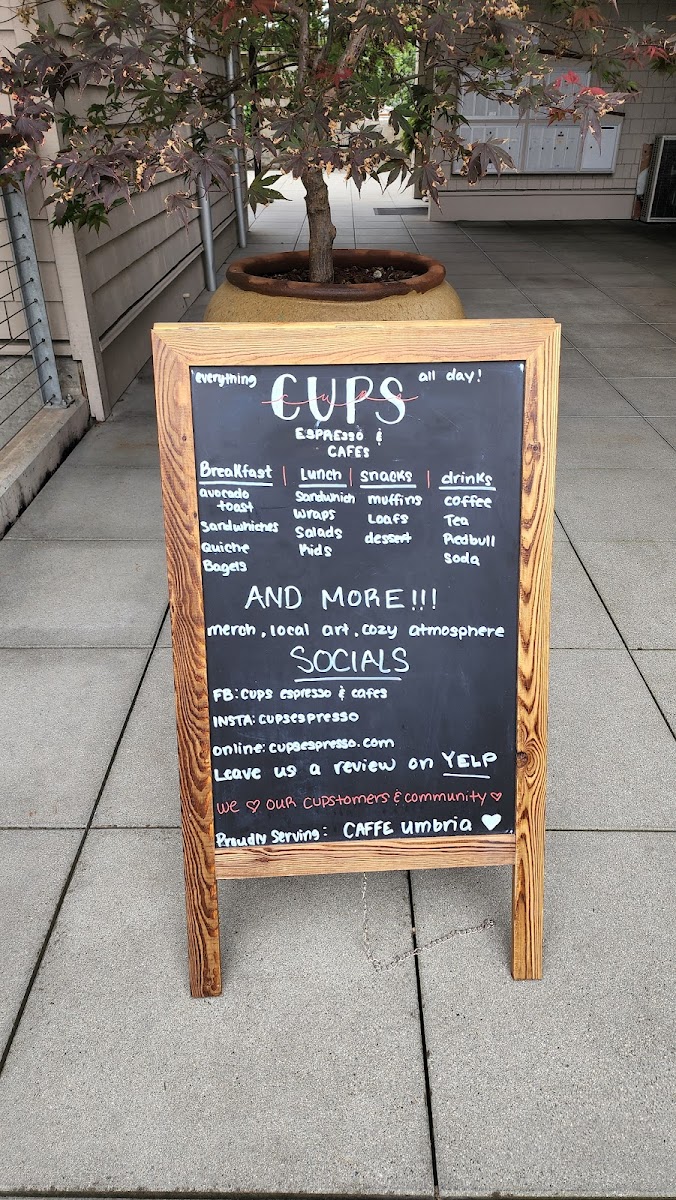 everything CUPS all day!
cups
ESPRESSO &
CAFES
Breakfast | Lunch | snacks | drinks
avocado toast
Sandwhiches
Quiche
Bagels
Sandwhich
wraps
Salads
Kids
muffins
Loafs
dessert
coffee
Tea
Redbull
soda
AND MORE!!!
merch, local art, cozy atmosphere
SOCIALS
FB: cups espresso & cafes
INSTA: cupsespresso
online: cupsespresso.com
Leave us a review on YELP
we ♡ our cupstomers & community ♡
Proudly Serving: CAFFE umbria ♥